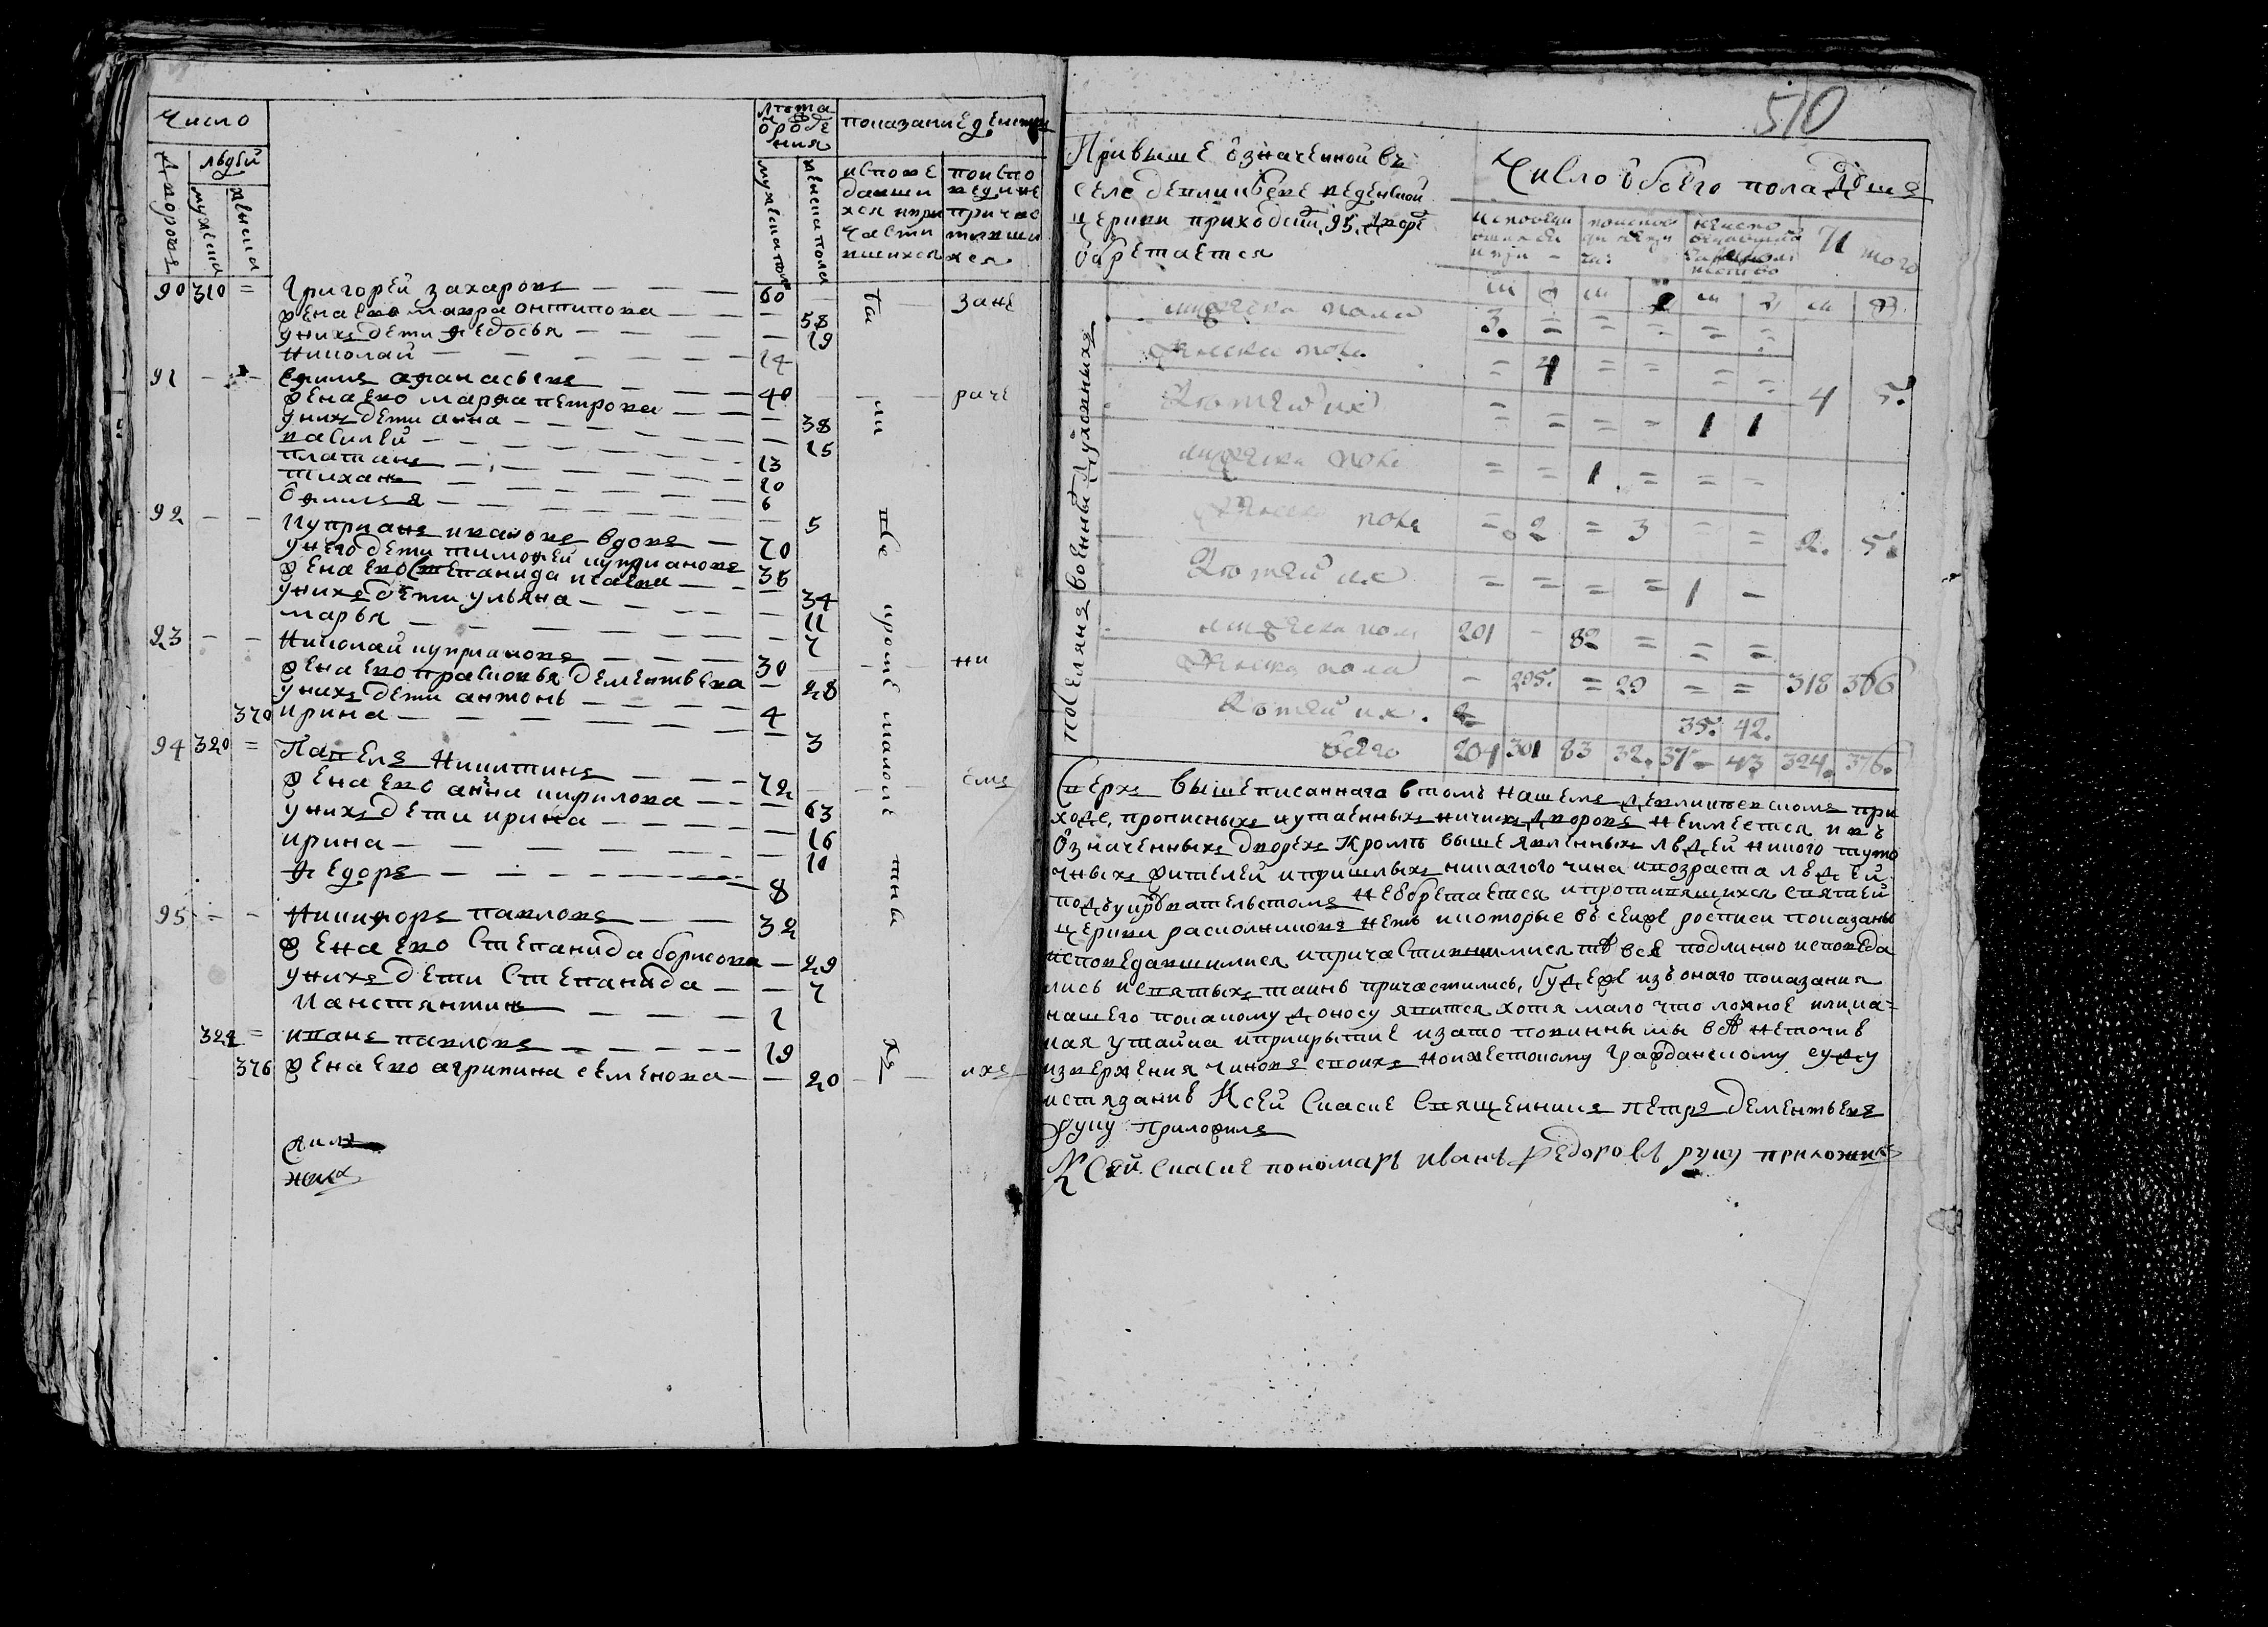 Число
людей
дворовъ
мужеска
женска
лѣта
о рожде
ния
мужеска пола
женска пола
показание действ
исповѣ
давши
хся и при
части
вшихся
по испо
ведине
причас
тивши
хся
90 310 = Григорей захаровъ — — — 60
жена ево мавра онтипова — — — 58
у нихъ дети федосья — — — 19
николай — — — 14
91 — — ефимъ афанасьевъ — — — 40
жена ево марфа петрова — — — 38
у нихъ дети анна — — — 15
василей — — — 13
платонъ — — — 10
тиханъ — — — 6
офимья — — — 5
92 — — куприанъ ивановъ вдовъ — 70
у него дети тимофей куприановъ 36
жена ево степанида — — 34
у нихъ дети ульяна — — — 11
марья — — — 7
93 — — николай куприановъ — — — 30
жена ево прасковья дементьева — 28
у нихъ дети антонъ — — — 4
370 ирина — — — 3
94 320 = Павелъ никитинъ — — — 72
жена ево анна кирилова — — — 63
у нихъ дети ирина — — — 16
ирина — — — 10
федоръ — — — 8
95 — — никифоръ павловъ — — — 32
жена ево степанида борисова — 29
у нихъ дети степанида — — 7
констянтинъ — — — 1
324 = иванъ павловъ — — — 19
376 жена ево агрипина семенова — — 20
ты
ли
все
кроме
малолѣ
тны
хъ
зане
раче
ни
емъ
ихъ
510
При выше означенной въ
селе введенской
церкви приходскихъ 95 дворѣ
обретается
Число обоего пола душъ
Итого
м ж м ж м ж м ж
Духовныхъ
мужеска пола 3. = = = = =
женска пола = 4 = = = =
детей ихъ = = = = 1 1 4 5.
военныхъ
мужеска пола = = 1. = = =
женска пола = 2 = 3 = = 2. 5.
детей ихъ = = = = 1 —
поселянъ
мужеска пола 201 — 82 = = =
женска пола — 295. = 29 = = 318 366
детей ихъ. 35. 42.
всего 204 301 83 32. 37 — 43 324. 376.
Сверхъ вышеписаннаго в томъ нашемъ при
ходе, прописныхъ и утаенныхъ ничьихъ дворовъ не имеется и въ
означенныхъ дворехъ кромѣ выше явленныхъ людей никого туто
чныхъ жителей и пришлыхъ никакого чина и возраста людей
под укрывательствомъ не обретается и противящихся святей
церкви раскольниковъ нетъ и которые въ сеихъ росписи показаны
исповедавшимися и причастившимися тѣ все подлинно исповеда
лись и святыхъ таинъ причастились, будеже изъ онаго показания
нашего по какому доносу явится хотя мало что ложное или ка-
кая утайка и прикрытие и за то повинны мы все не точию
извержения чиновъ своихъ но и жестокому гражданскому суду
истязанию К сей скаске Священникъ петръ дементьевъ
руку приложилъ
К Сей скаске пономарь иванъ федоровъ руку приложилъ